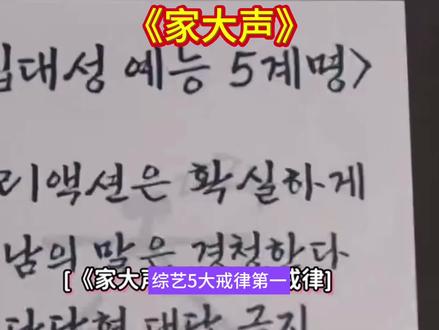 《家大声》
집대성 예능 5계명>
리액션은 확실하게
남의 말은 경청한다
[《家大声
戒律]
综艺5大戒律第一
단답형 대답 금지